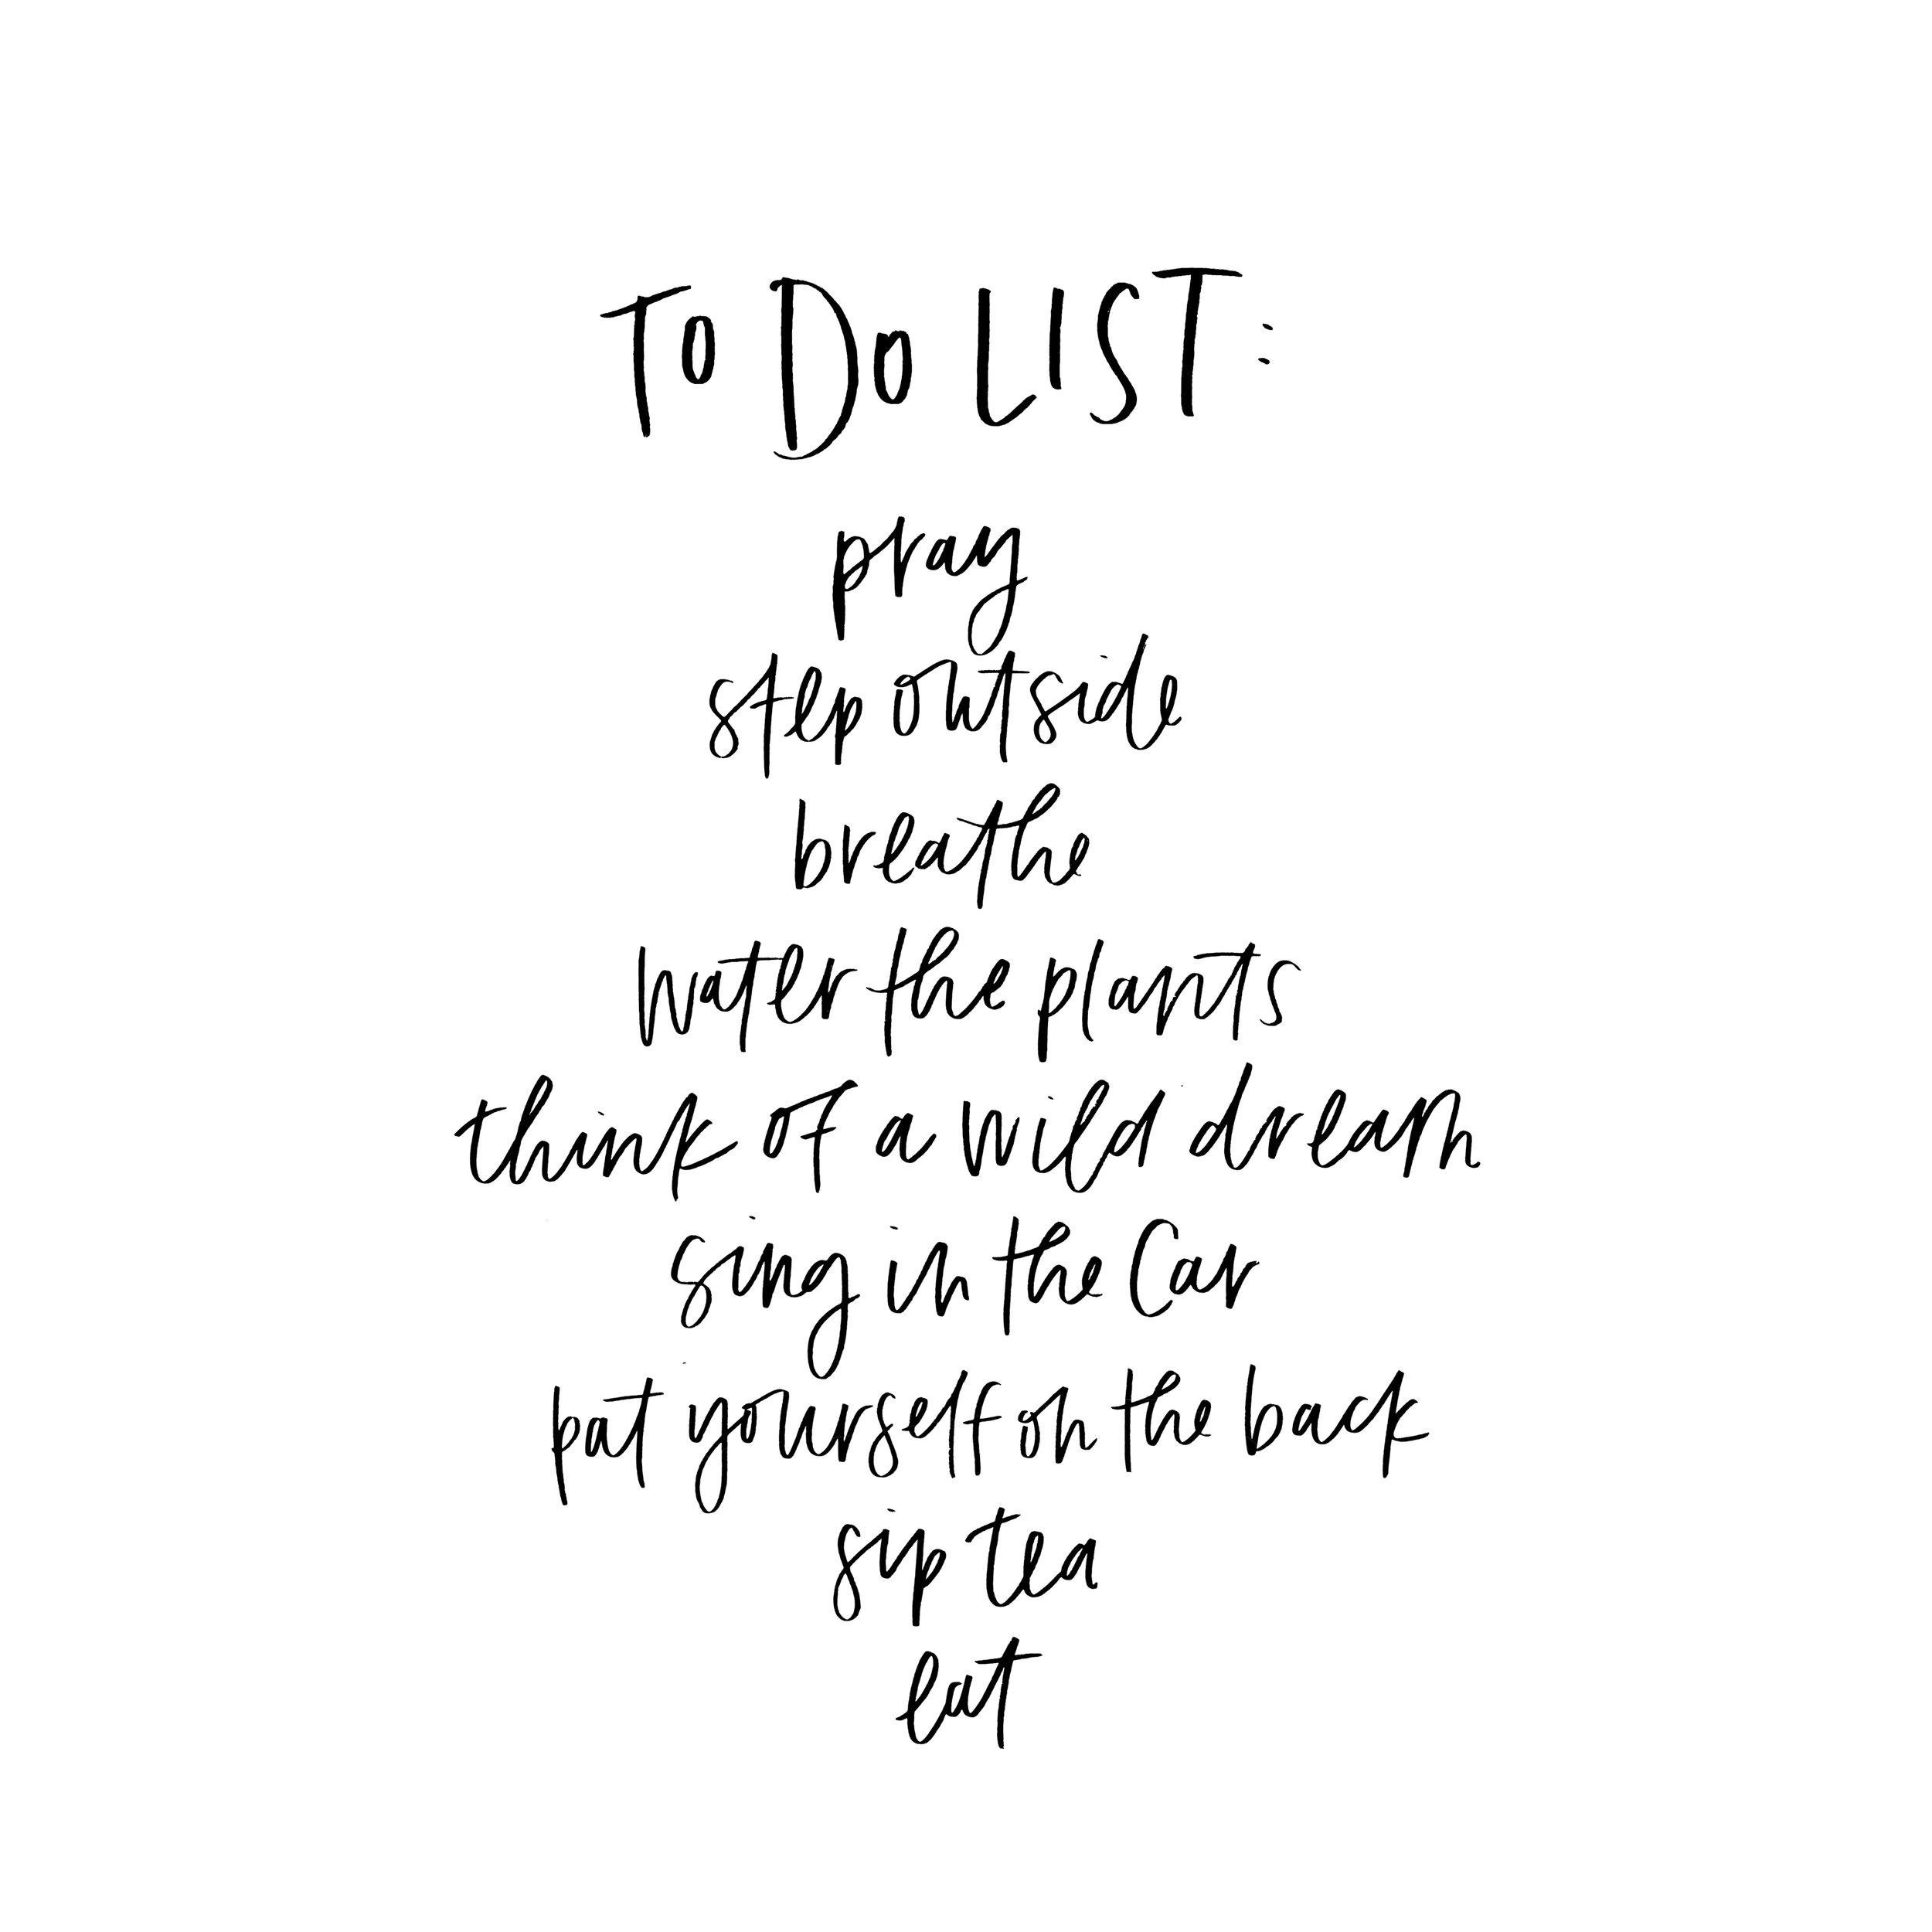 To Do LIST:
pray
step outside
breathe
water the plants
think of a wild dream
sing in the car
pat yourself on the back
sip tea
eat